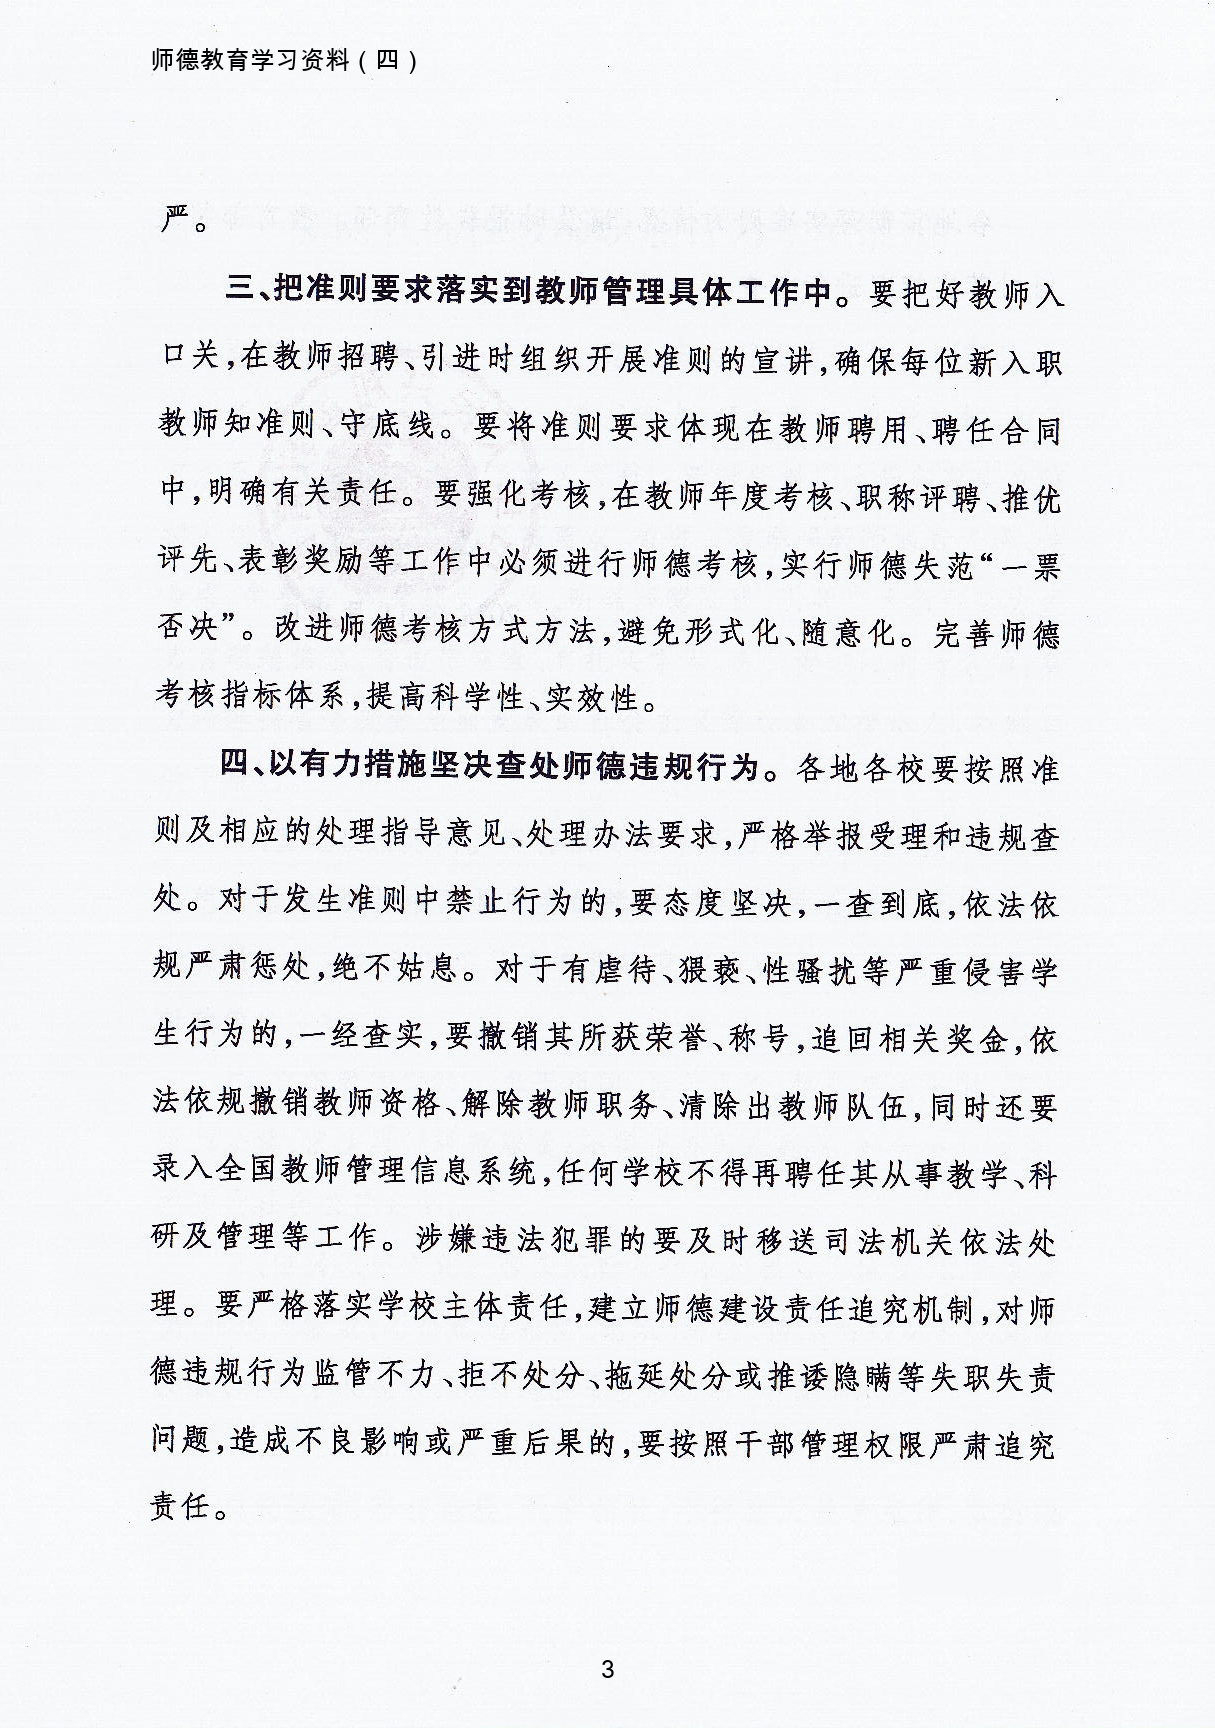 师德教育学习资料（四）
严。
三、把准则要求落实到教师管理具体工作中。要把好教师入
口关,在教师招聘、引进时组织开展准则的宣讲,确保每位新入职
教师知准则、守底线。要将准则要求体现在教师聘用、聘任合同
中,明确有关责任。要强化考核,在教师年度考核、职称评聘、推优
评先、表彰奖励等工作中必须进行师德考核,实行师德失范“一票
否决”。改进师德考核方式方法,避免形式化、随意化。完善师德
考核指标体系,提高科学性、实效性。
四、以有力措施坚决查处师德违规行为。各地各校要按照准
则及相应的处理指导意见、处理办法要求,严格举报受理和违规查
处。对于发生准则中禁止行为的,要态度坚决,一查到底,依法依
规严肃惩处,绝不姑息。对于有虐待、猥亵、性骚扰等严重侵害学
生行为的,一经查实,要撤销其所获荣誉、称号,追回相关奖金,依
法依规撤销教师资格、解除教师职务、清除出教师队伍,同时还要
录入全国教师管理信息系统,任何学校不得再聘任其从事教学、科
研及管理等工作。涉嫌违法犯罪的要及时移送司法机关依法处
理。要严格落实学校主体责任,建立师德建设责任追究机制,对师
德违规行为监管不力、拒不处分、拖延处分或推诿隐瞒等失职失责
问题,造成不良影响或严重后果的,要按照干部管理权限严肃追究
责任。
3